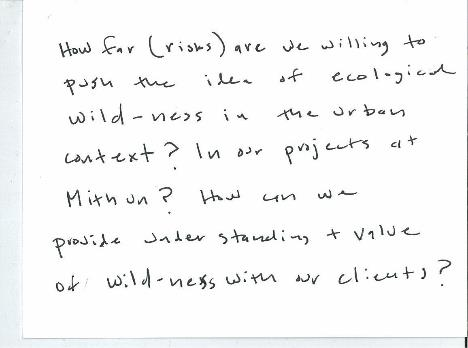 How far (risks) are we willing to
push the idea of ecological
wild-ness in the urban
context? In our projects at
Mithun? How can we
provide understanding + value
of wild-ness with our clients?